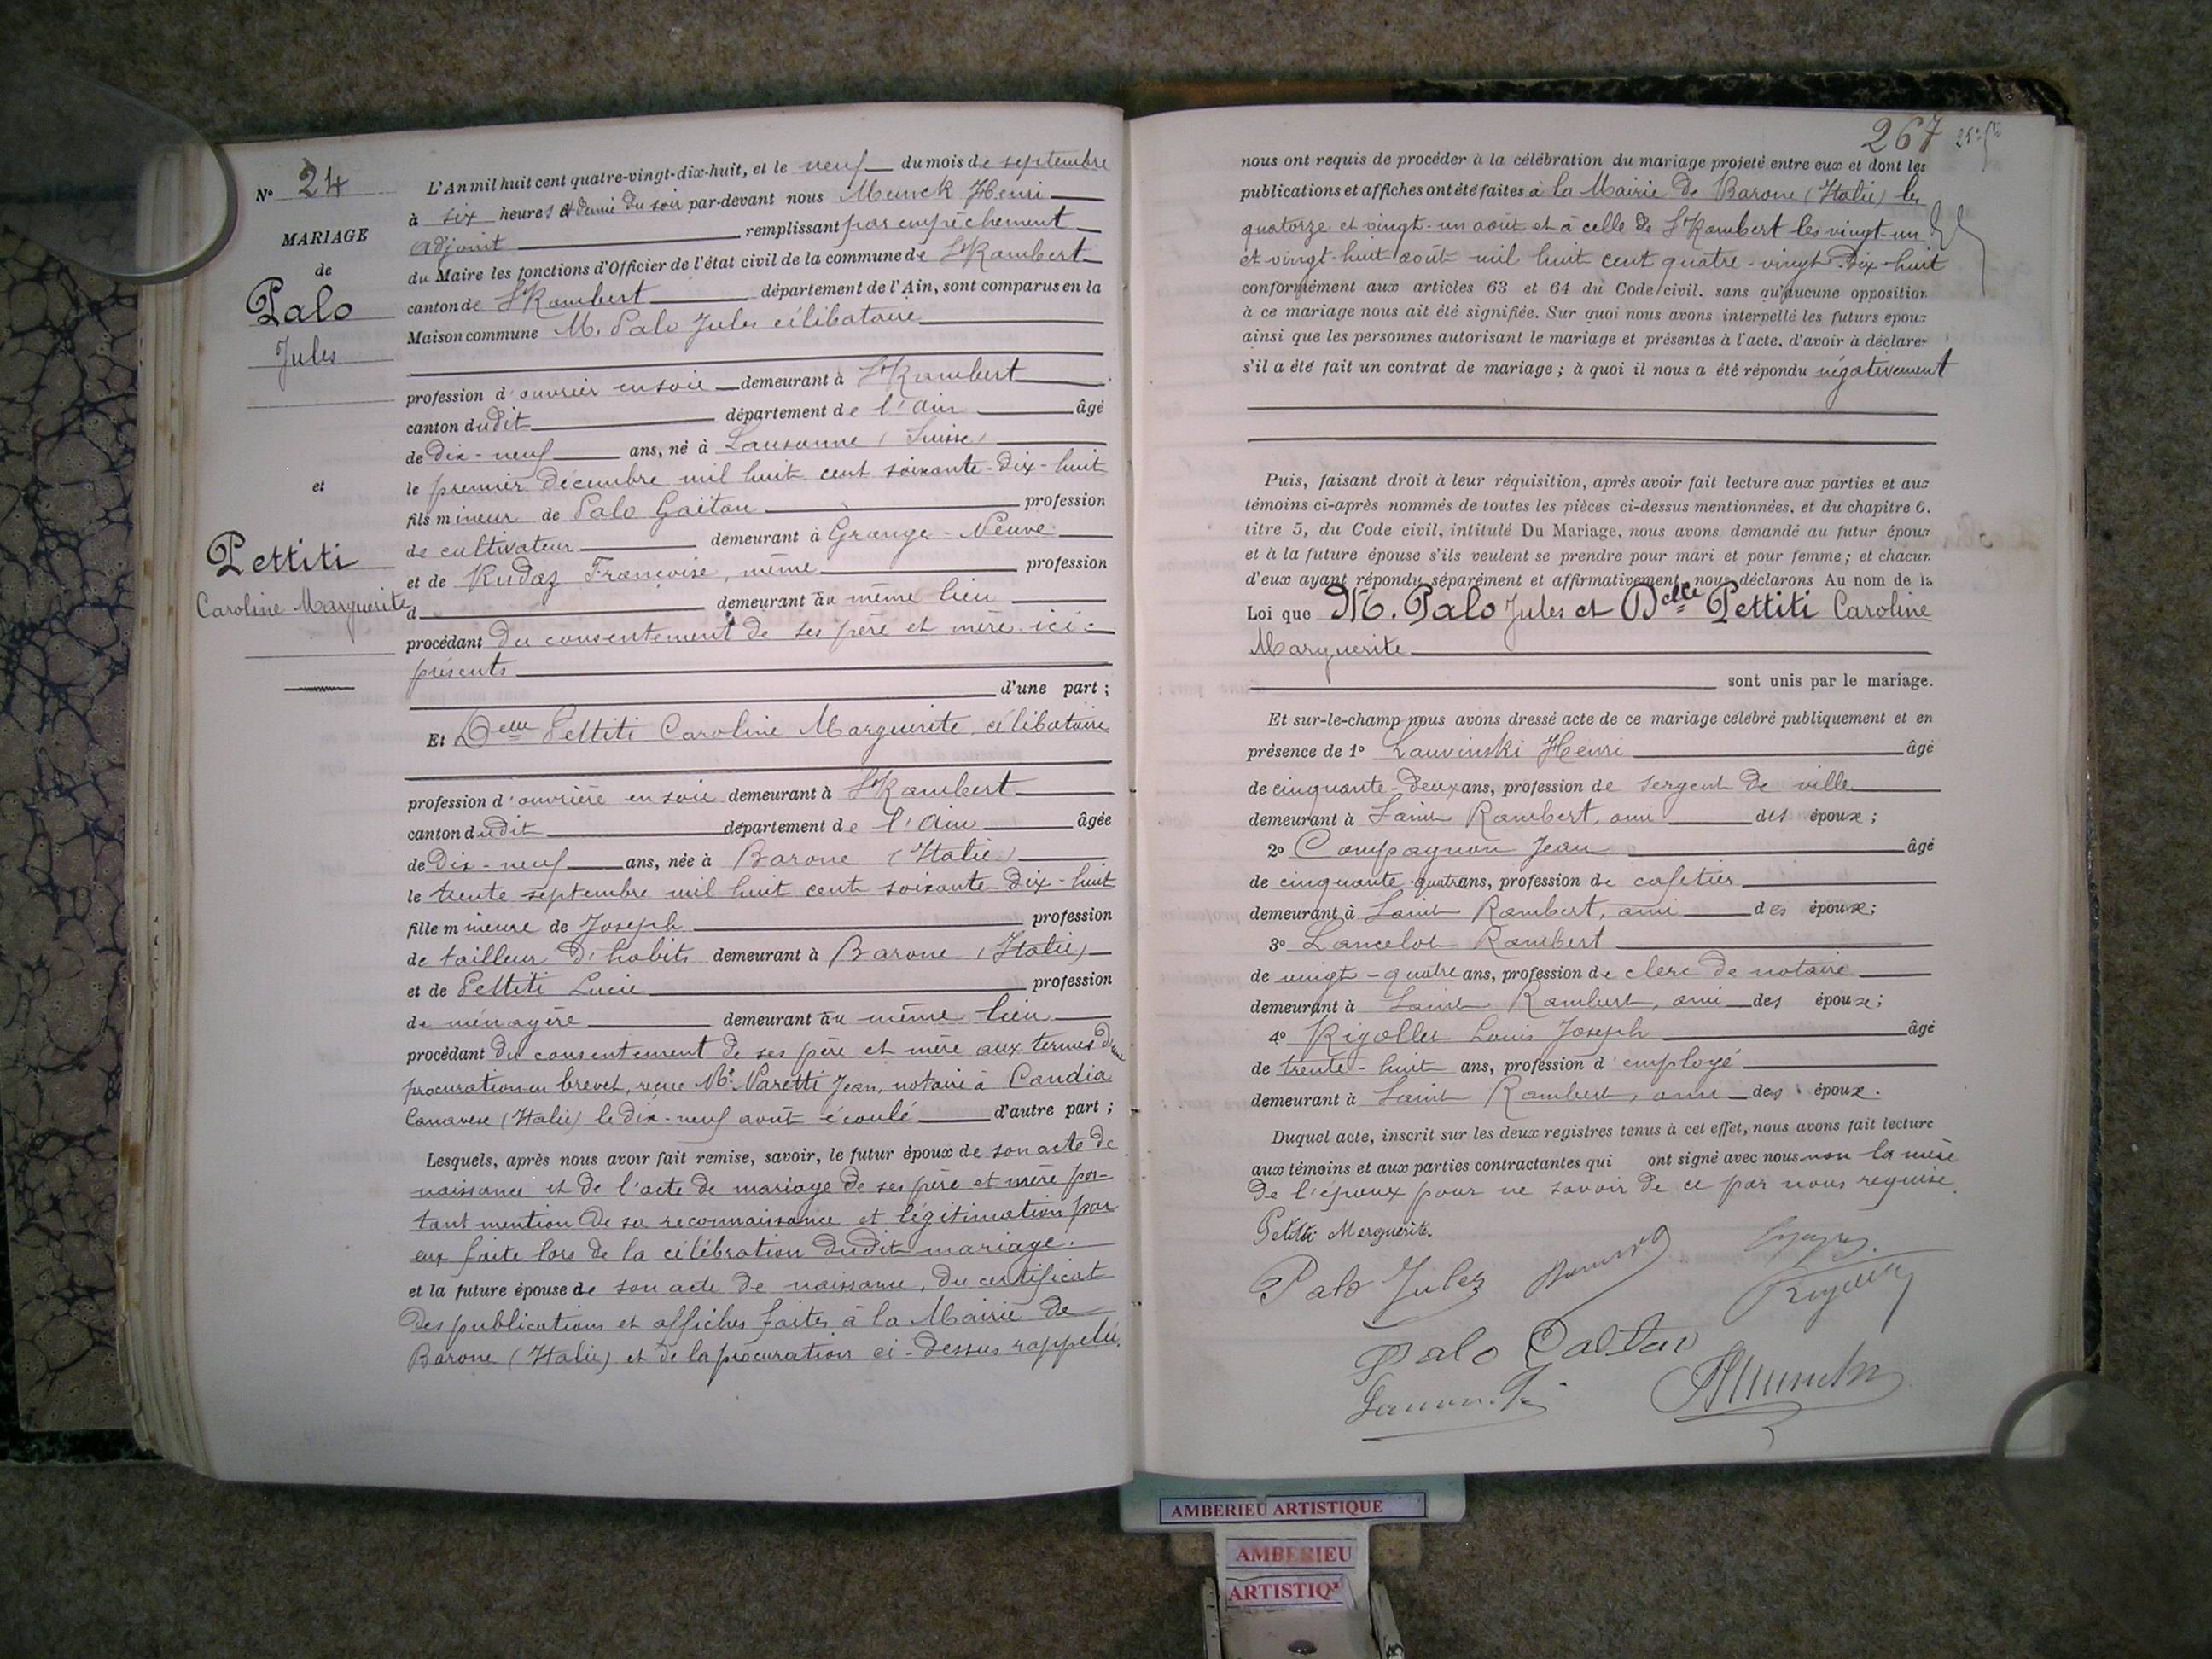 N° 24
MARIAGE
de
Palo
Jules
et
Pettiti
Caroline Marguerite
L'An mil huit cent quatre-vingt-dix-huit, et le neuf du mois de septembre
à six heures et demie du soir par-devant nous Munck Henri
adjoint remplissant par empêchement
du Maire les fonctions d'Officier de l'état civil de la commune de St Rambert
canton de St Rambert département de l'Ain, sont comparus en la
Maison commune M. Palo Jules célibataire
profession d'ouvrier en soie demeurant à St Rambert
canton dudit département de l'Ain âgé
de dix-neuf ans, né à Lausanne (Suisse)
le premier décembre mil huit cent soixante-dix-huit
fils mineur de Palo Gaëtan profession
de cultivateur demeurant à Grange-Neuve
et de Rudaz Françoise, même profession
d demeurant au même lieu
procédant du consentement de ses père et mère ici-
présents
d'une part ;
Et Delle Pettiti Caroline Marguerite, célibataire
profession d'ouvrière en soie demeurant à St Rambert
canton dudit département de l'Ain âgée
de dix-neuf ans, née à Barone (Italie)
le trente septembre mil huit cent soixante-dix-huit
fille mineure de Joseph profession
de tailleur d'habits demeurant à Barone (Italie)
et de Pettiti Lucie profession
de ménagère demeurant au même lieu
procédant du consentement de ses père et mère aux termes d'une
procuration en brevet, reçue Me Varetti Jean, notaire à Candia
Canavese (Italie) le dix-neuf août écoulé d'autre part ;
Lesquels, après nous avoir fait remise, savoir, le futur époux de son acte de
naissance et de l'acte de mariage de ses père et mère por-
tant mention de sa reconnaissance et légitimation par
eux faite lors de la célébration dudit mariage.
et la future épouse de son acte de naissance, du certificat
des publications et affiches faites à la Mairie de
Barone (Italie) et de la procuration ci-dessus rappelée.
267
nous ont requis de procéder à la célébration du mariage projeté entre eux et dont les
publications et affiches ont été faites à la Mairie de Barone (Italie) les
quatorze et vingt-un août et à celle de St Rambert les vingt-un
et vingt-huit août mil huit cent quatre-vingt-dix-huit
conformément aux articles 63 et 64 du Code civil, sans qu'aucune opposition
à ce mariage nous ait été signifiée. Sur quoi nous avons interpellé les futurs époux
ainsi que les personnes autorisant le mariage et présentes à l'acte, d'avoir à déclarer
s'il a été fait un contrat de mariage ; à quoi il nous a été répondu négativement
Puis, faisant droit à leur réquisition, après avoir fait lecture aux parties et aux
témoins ci-après nommés de toutes les pièces ci-dessus mentionnées, et du chapitre 6,
titre 5, du Code civil, intitulé Du Mariage, nous avons demandé au futur époux
et à la future épouse s'ils veulent se prendre pour mari et pour femme ; et chacun
d'eux ayant répondu séparément et affirmativement, nous déclarons Au nom de la
Loi que M. Palo Jules et Delle Pettiti Caroline
Marguerite
sont unis par le mariage.
Et sur-le-champ nous avons dressé acte de ce mariage célébré publiquement et en
présence de 1° Lauvinski Henri âgé
de cinquante-deux ans, profession de sergent de ville
demeurant à Saint Rambert, ami des époux ;
2° Compagnon Jean âgé
de cinquante-quatre ans, profession de cafetier
demeurant à Saint Rambert, ami des époux ;
3° Lancelot Rambert
de vingt-quatre ans, profession de clerc de notaire
demeurant à Saint Rambert, ami des époux ;
4° Rigollet Louis Joseph âgé
de trente-huit ans, profession d'employé
demeurant à Saint Rambert, ami des époux.
Duquel acte, inscrit sur les deux registres tenus à cet effet, nous avons fait lecture
aux témoins et aux parties contractantes qui ont signé avec nous non la mère
de l'époux pour ne savoir de ce par nous requise.
Petiti Marguerite.
Palo Jules
Palo
HMunck
AMBERIEU ARTISTIQUE
AMBERIEU
ARTISTIQ